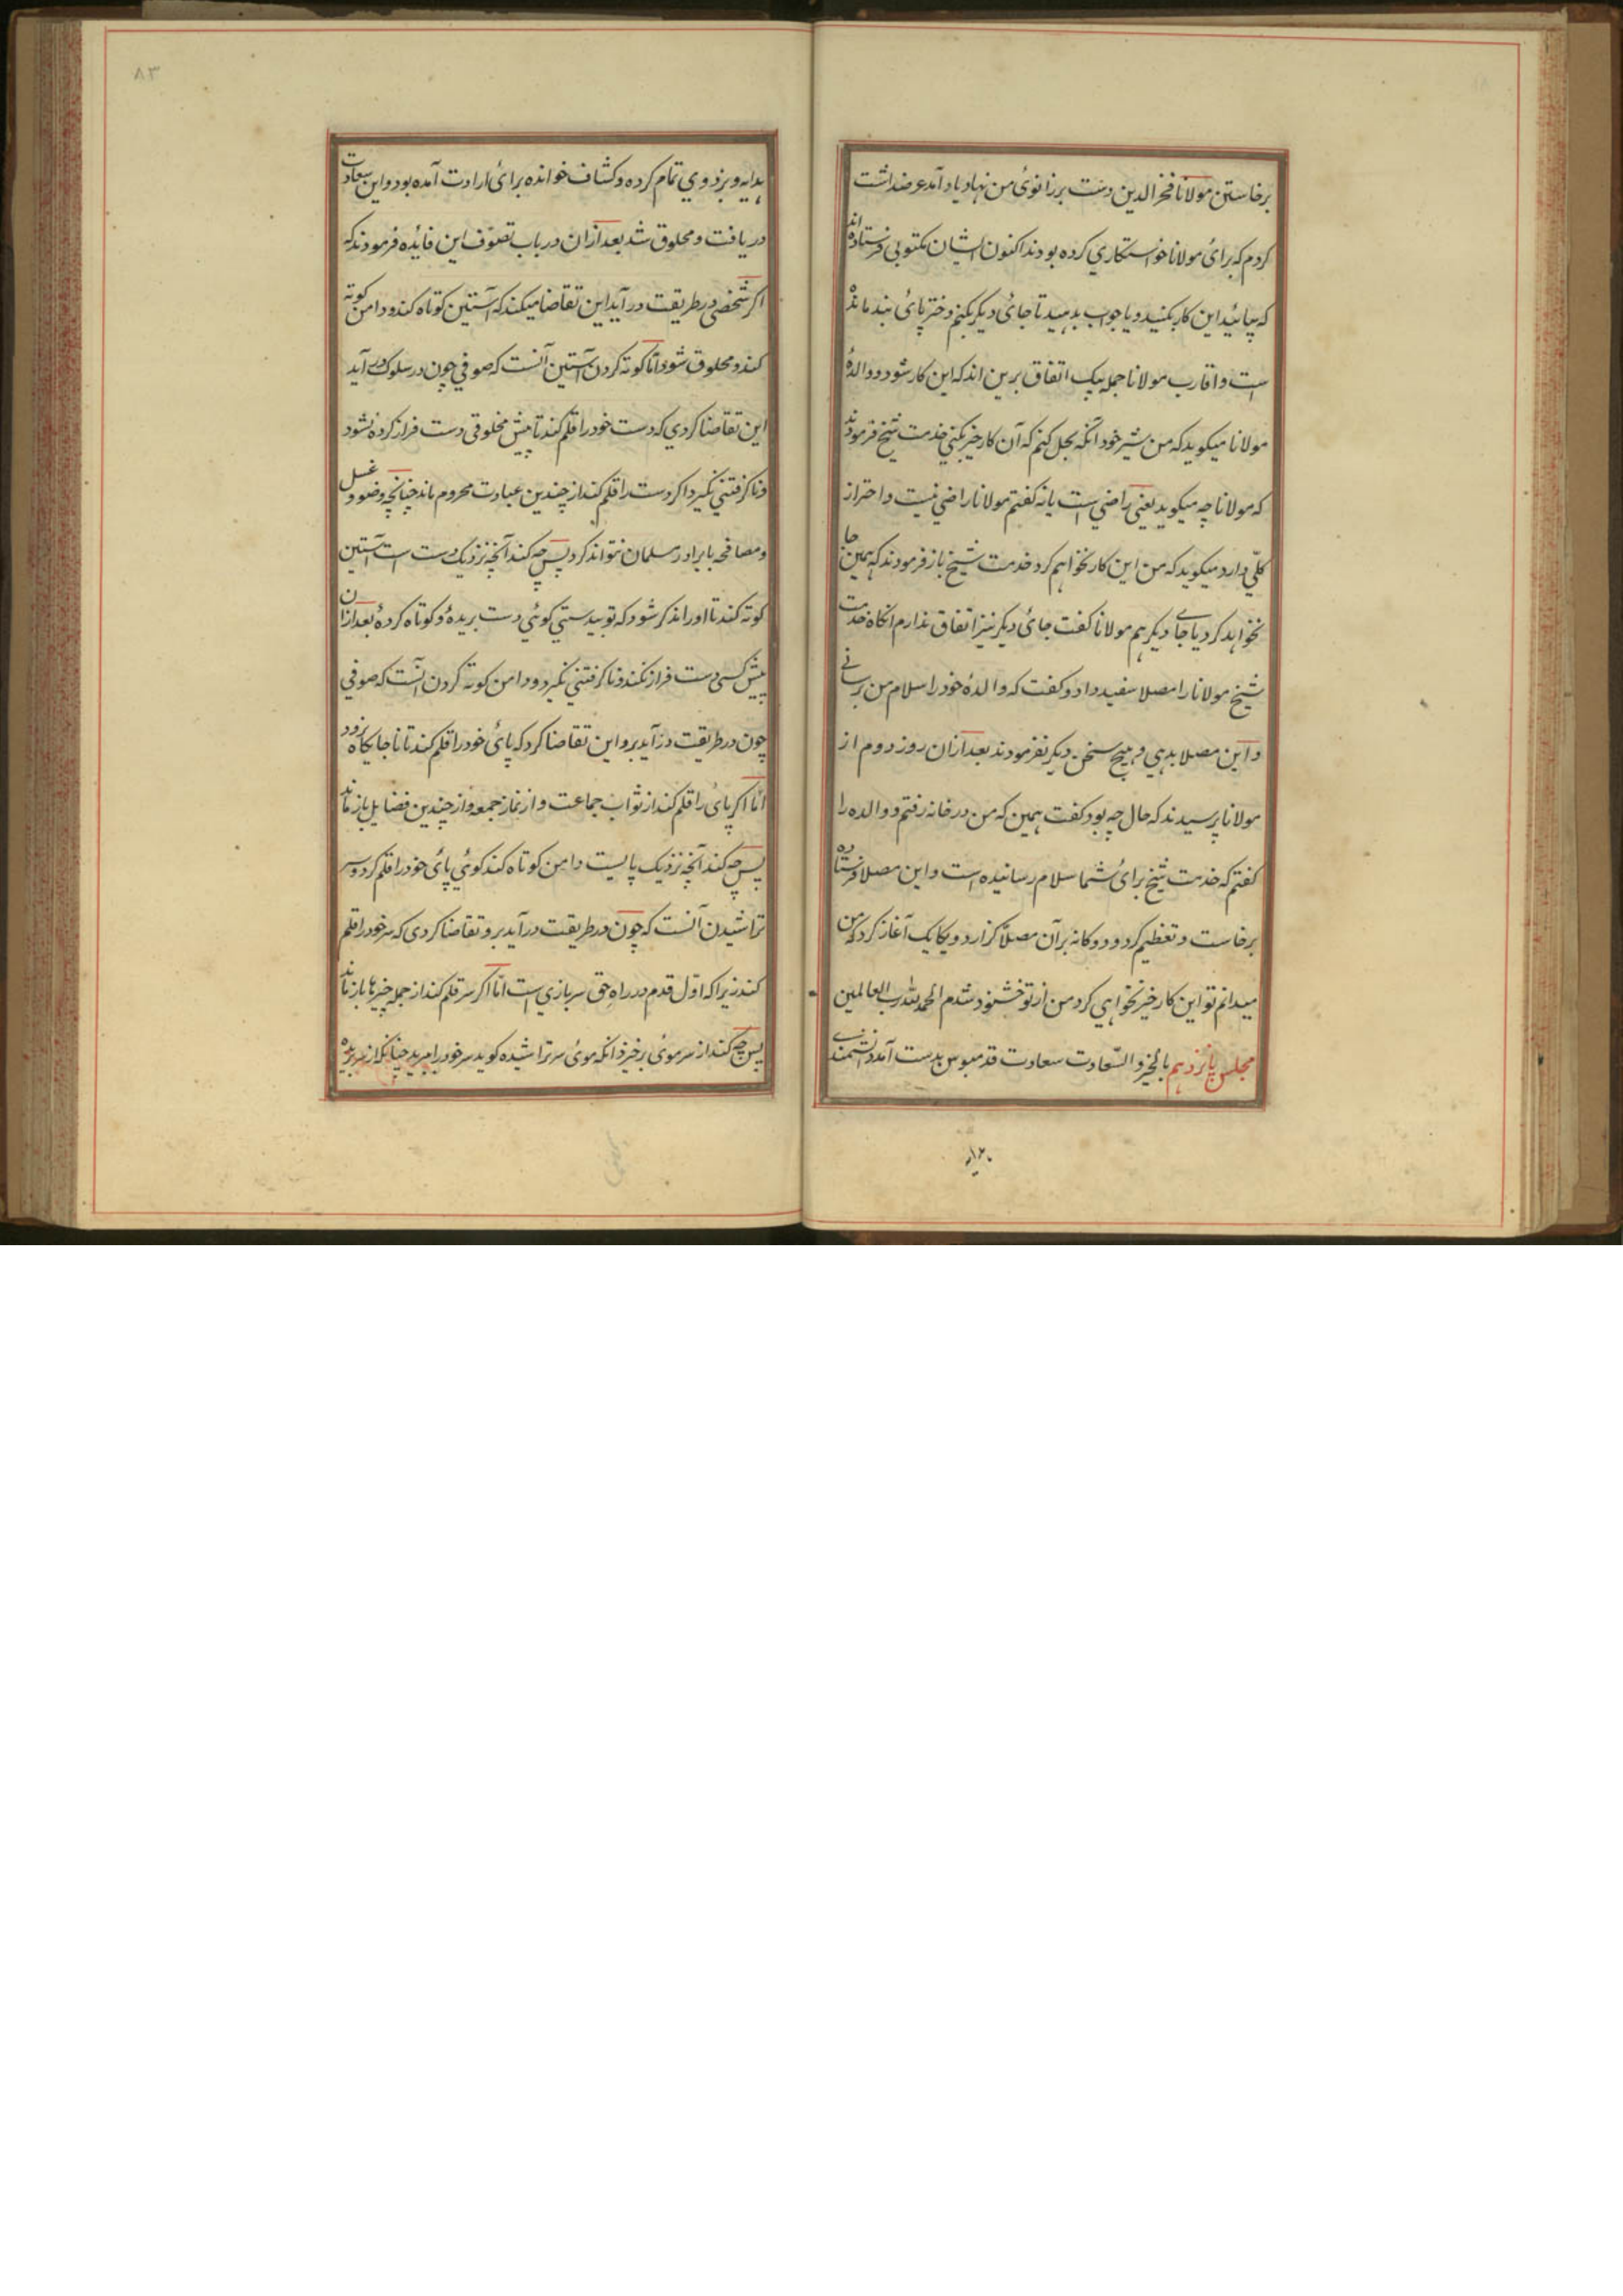 برخاستن مولانا فخر الدین دست بر زانوئ من نهاد یاد آمد عرضداشت
کردم که برائ مولانا خواستکاري کرده بودند اکنون ایشان مکتوبی فرستاده اند
که بیائید این کار بکنید و یا جواب بدهید تا جائ دیکر بکنم دختر پائ بند مانده
است و اقارب مولانا جمله بیک اتفاق برین اند که این کار شود و والدۀ
مولانا میکوید که من شیر خود آنکه بحل کنم که آن کار خیر بکني خدمت شیخ فرمودند
که مولانا چه میکوید یعنی راضي است یا نه کفتم مولانا راضي نیست و احتراز
کلّي دارد میکوید که من این کار نخواهم کرد خدمت شیخ باز فرمودند که همین جا
نخواهد کرد یا جاے دیکر هم مولانا کفت جائ دیکر نیز اتفاق ندارم انکاه خدمت
شیخ مولانا را مصلا سفید داد و کفت که والدۀ خود را سلام من برسانے
و این مصلا بدهي و هیچ سخن دیکر نفرمودند بعد ازان روز دوم از
مولانا پرسیدند که حال چه بود کفت همین که من در خانه رفتم و والده را
کفتم که خدمت شیخ برائ شما سلام رسانیده است و این مصلا فرستاده
برخاست و تعظیم کرد و دوکانه برآن مصلّا کزارد و یکایک آغاز کرد که من
میدانم تو این کار خیر نخواهي کرد من از تو خشنود شدم الحمد لله رب العالمین
مجلس پانزدهم بالخیر و السّعادت سعادت قدمبوس بدست آمد دانشمندے
هدایه و بزدوي تمام کرده و کشاف خوانده برائ ارادت آمده بود و این سعادت
دریافت و محلوق شد بعد ازان در باب تصوّف این فائده فرمودند که
اکر شخصي در طریقت درآید این تقاضا میکند که آستین کوتاه کند و دامن کوته
کند و محلوق شود امّا کوته کردن آستین آنست که صوفي چون در سلوک درآید
این تقاضا کردي که دست خود را قلم کند تا پیش مخلوقی دست فراز کرده نشود
و ناکرفتني نکیرد اکر دست را قلم کند از چندین عبادت محروم ماند چنانچه وضو و غسل
و مصافحه با برادر مسلمان نتواند کرد پس چه کند آنچه نزدیک دست است آستین
کوته کند تا او را ذکر شود که تو بیدستي کوئي دست بریده و کوتاه کردۀ بعد ازان
پیش کسی دست فراز نکند و ناکرفتني نکیرد و دامن کوته کردن آنست که صوفي
چون در طریقت درآید برو این تقاضا کرد که پائ خود را قلم کند تا ناجایکاه نرود
امّا اکر پائ را قلم کند از ثواب جماعت و از نماز جمعه و از چندین فضایل باز ماند
پس چه کند آنچه نزدیک پایست دامن کوتاه کند کوئي پائ خود را قلم کرد و سر
تراشیدن آنست که چون در طریقت درآید برو تقاضا کردي که سر خود را قلم
کند زیراکه اوّل قدم در راه حق سربازي است امّا اکر سر قلم کند از جمله چیزها باز ماند
پس چه کند از سر موئ برخیزد آنکه موئ سر تراشیده کوید سر خود را برید چنانکه از سر بریده
هدایه
۸۳